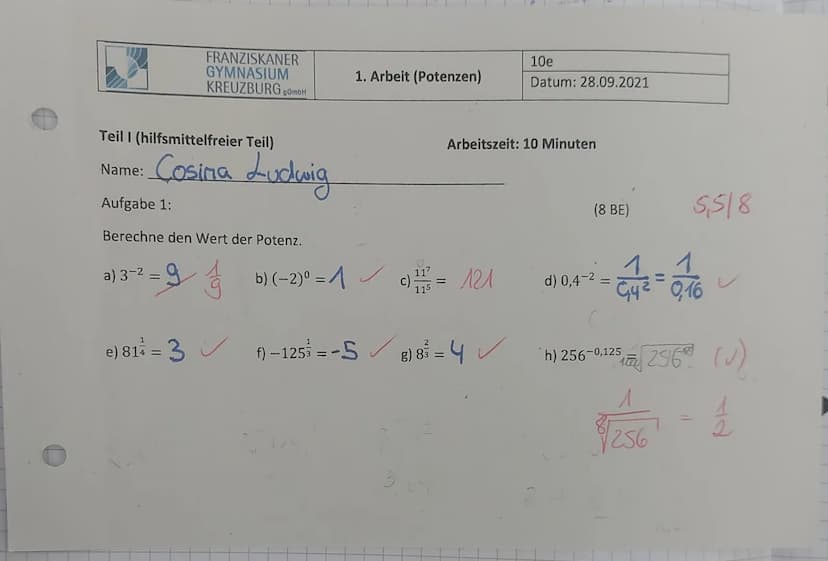 FRANZISKANER
GYMNASIUM
KREUZBURG gGmbH
1. Arbeit (Potenzen)
10e
Datum: 28.09.2021
Teil I (hilfsmittelfreier Teil) Arbeitszeit: 10 Minuten
Name: Cosima Ludwig
Aufgabe 1: (8 BE) 5,5/8
Berechne den Wert der Potenz.
a) 3⁻² = 9 1/9 b) (−2)⁰ = 1 ✓ c) 11⁷/11⁵ = 121 d) 0,4⁻² = 1/0,4² = 1/0,16 ✓
e) 81^(1/4) = 3 ✓ f) −125^(1/3) = -5 ✓ g) 8^(2/3) = 4 ✓ h) 256^(−0,125) = (✓)
1/⁸√256 = 1/2